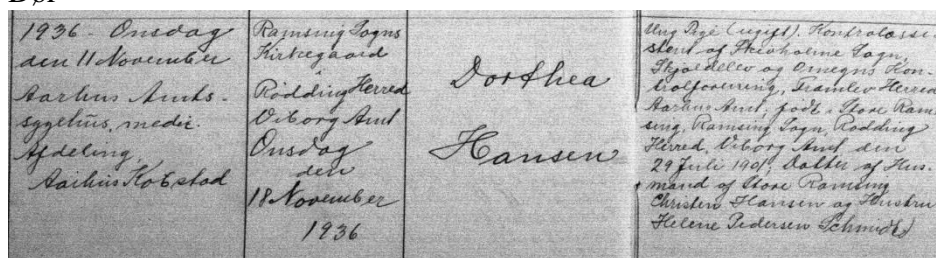 1936 - Onsdag
den 11 November
Aarhus Amts-
sygehus, medic.
Afdeling,
Aarhus Købstad
Ramsing Sogns
Kirkegaard
Rødding Herred
Viborg Amt
Onsdag
den
18 November
1936
Dorthea
Hansen
Ung Pige (ugift). Kontrolassi-
stent af Skovholme Sogn,
Skjoldelev og Omegns Kon-
trolforening, Framlev Herred
Aarhus Amt, født i Store Ram-
sing, Ramsing Sogn, Rødding
Herred, Viborg Amt den
29 Juli 1901, Datter af Hus-
mand af Store Ramsing
Christen Hansen og Hustru
Helene Pedersen Schmidt